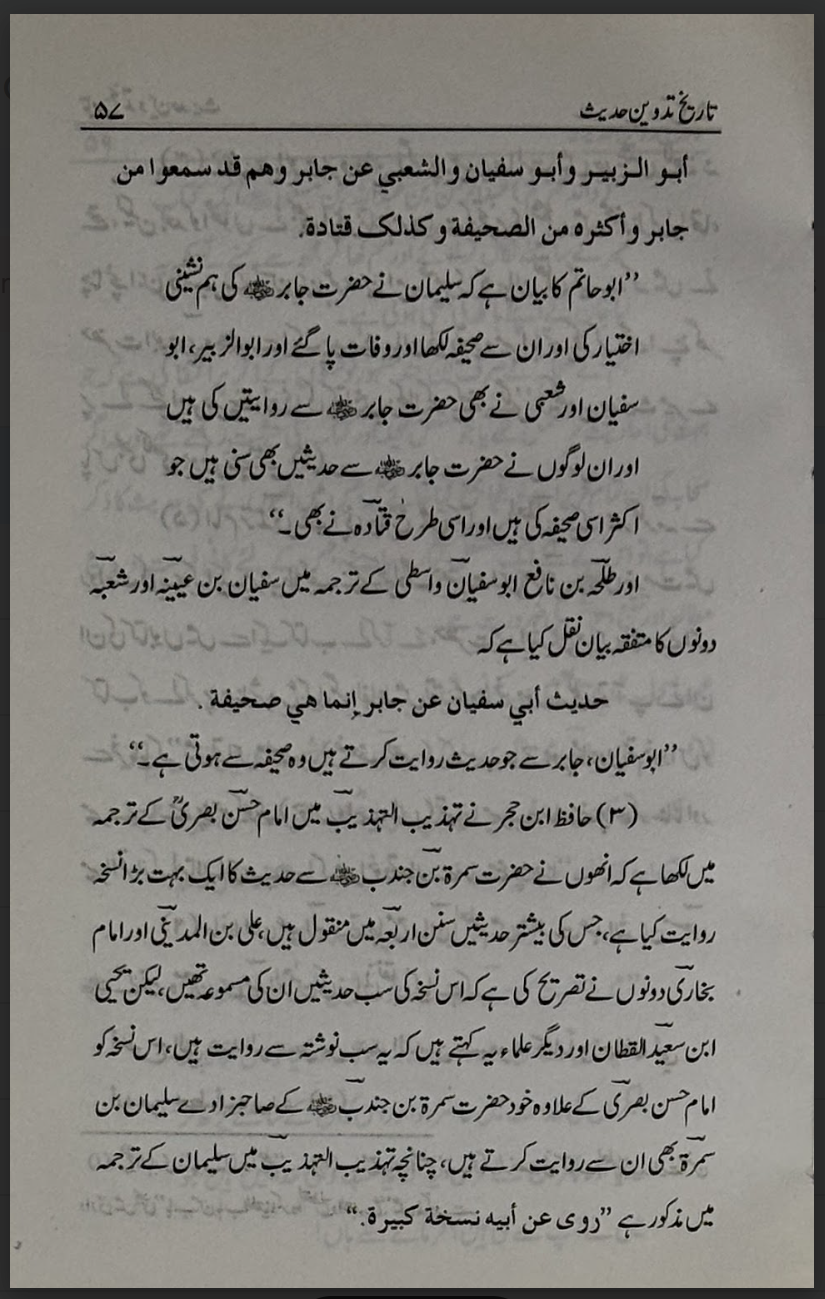 تاریخ تدوین حدیث ۵۷
أبو الزبير وأبو سفيان والشعبي عن جابر وهم قد سمعوا من
جابر وأكثره من الصحيفة وكذلك قتادة.
’’ابوحاتم کا بیان ہے کہ سلیمان نے حضرت جابر ﷛ کی ہم نشینی
اختیار کی اور ان سے صحیفہ لکھا اور وفات پا گئے اور ابوالزبیر، ابو
سفیان اور شعبی نے بھی حضرت جابر ﷛ سے روایتیں کی ہیں
اور ان لوگوں نے حضرت جابر ﷛ سے حدیثیں بھی سنی ہیں جو
اکثر اسی صحیفہ کی ہیں اور اسی طرح قتادہ نے بھی۔‘‘
اور طلحہ بن نافع ابوسفیان واسطی کے ترجمہ میں سفیان بن عیینہ اور شعبہ
دونوں کا متفقہ بیان نقل کیا ہے کہ
حديث أبي سفيان عن جابر إنما هي صحيفة .
’’ابوسفیان، جابر سے جو حدیث روایت کرتے ہیں وہ صحیفہ سے ہوتی ہے۔‘‘
(۳) حافظ ابن حجر نے تہذیب التہذیب میں امام حسن بصریؒ کے ترجمہ
میں لکھا ہے کہ انھوں نے حضرت سمرۃ بن جندب ﷛ سے حدیث کا ایک بہت بڑا نسخہ
روایت کیا ہے، جس کی بیشتر حدیثیں سنن اربعہ میں منقول ہیں، علی بن المدینی اور امام
بخاری دونوں نے تصریح کی ہے کہ اس نسخہ کی سب حدیثیں ان کی مسموعہ تھیں، لیکن یحییٰ
ابن سعید القطان اور دیگر علماء یہ کہتے ہیں کہ یہ سب نوشتہ سے روایت ہیں، اس نسخہ کو
امام حسن بصری کے علاوہ خود حضرت سمرۃ بن جندب ﷛ کے صاحبزادے سلیمان بن
سمرۃ بھی ان سے روایت کرتے ہیں، چنانچہ تہذیب التہذیب میں سلیمان کے ترجمہ
میں مذکور ہے ’’روى عن أبيه نسخة كبيرة.‘‘